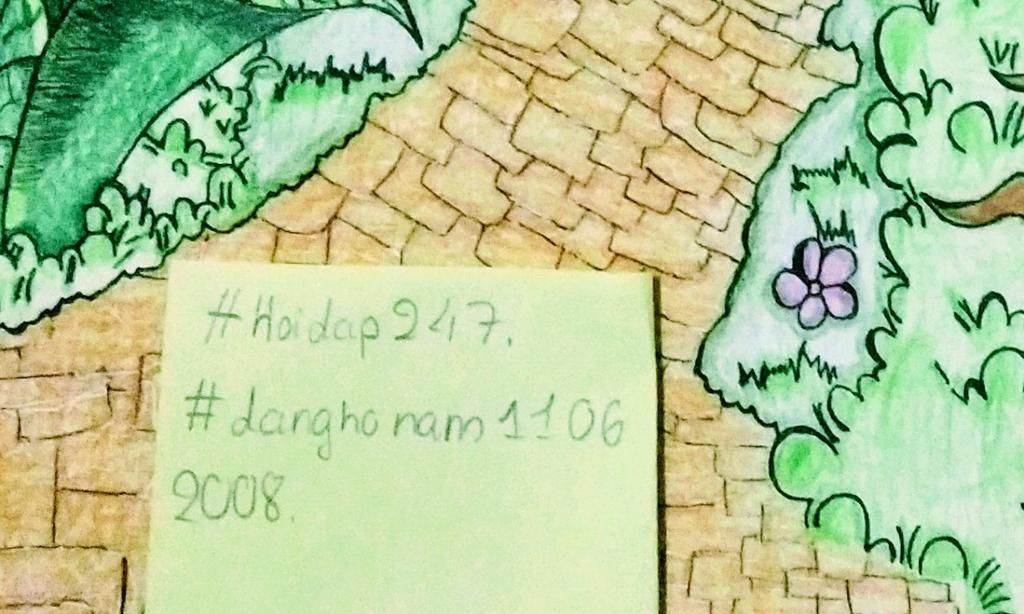 #Hoidap247.
#danghonam1106
2008.